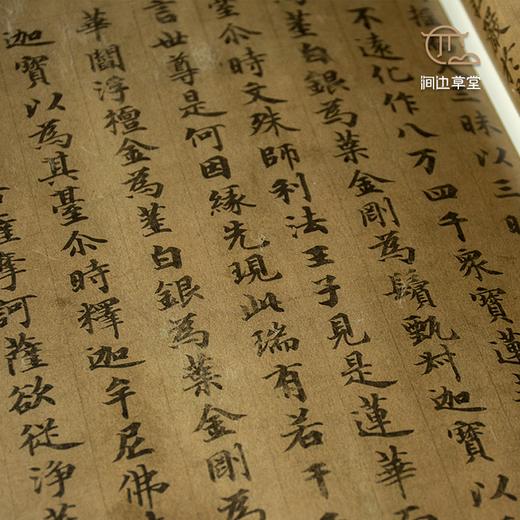 涧边草堂
三昧以三
不遠化作八万四千眾寶蓮
莖白銀為葉金剛為鬚甄叔迦寶以
臺尒時文殊師利法王子見是蓮華
言世尊是何因緣先現此瑞有若干
華閻浮檀金為莖白銀為葉金剛為
迦寶以為其臺尒時釋迦牟尼佛
薩摩訶薩欲從淨